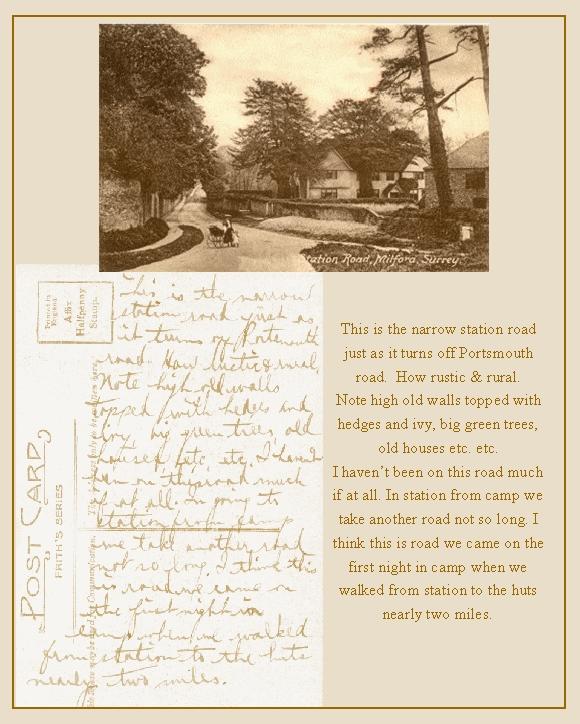 Station Road, Milford, Surrey.
Printed in
England.
Affix
Halfpenny
Stamp.
POST CARD
FRITH'S SERIES
This is the narrow
station road just as
it turns off Portsmouth
road. How rustic & rural,
Note high old walls
topped with hedges and
ivy, big green trees, old
houses, etc. etc. I haven't
been on this road much
if at all. In going to
station from camp
we take another road
not so long. I think this
is road we came on
the first night in
camp when we walked
from station to the huts
nearly two miles.
This is the narrow station road
just as it turns off Portsmouth
road. How rustic & rural.
Note high old walls topped with
hedges and ivy, big green trees,
old houses etc. etc.
I haven't been on this road much
if at all. In station from camp we
take another road not so long. I
think this is road we came on the
first night in camp when we
walked from station to the huts
nearly two miles.